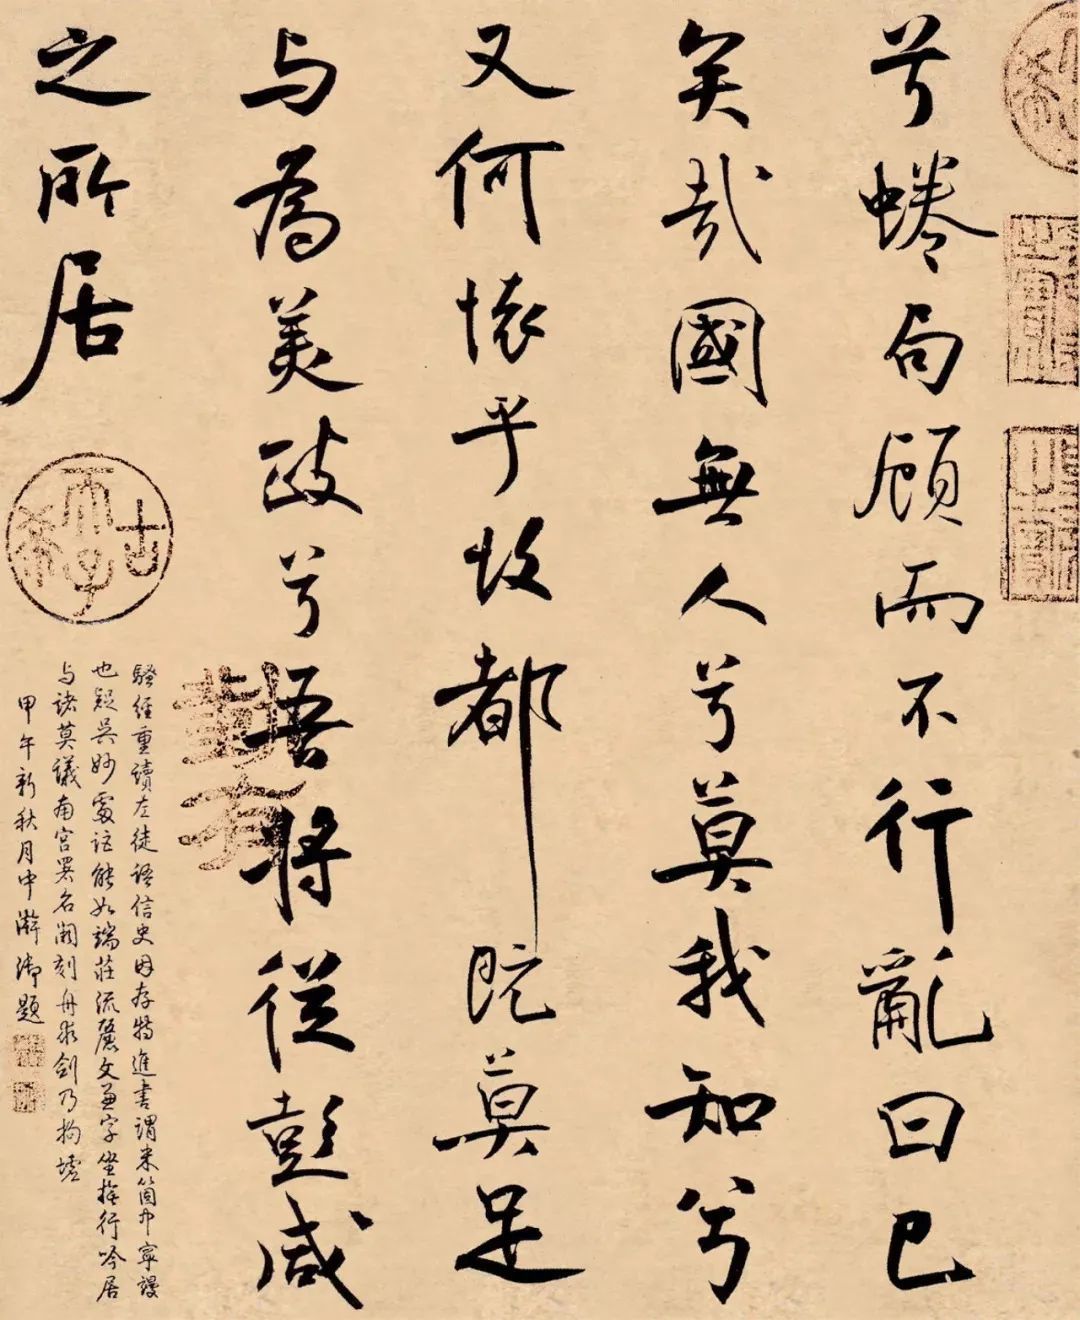 兮蜷句顧而不行亂曰已
矣哉國無人兮莫我知兮
又何懷乎故都既莫足
与為美政兮吾將從彭咸
之所居
古希天子
騷經重讀左徒語信史因存特進書謂米箇中寧謾
也疑吳妙處詎能如端莊流麗文兼字坐挹行吟居
与諸莫議南宮署名闕刻舟求劍乃拘墟
甲午新秋月中澣御題